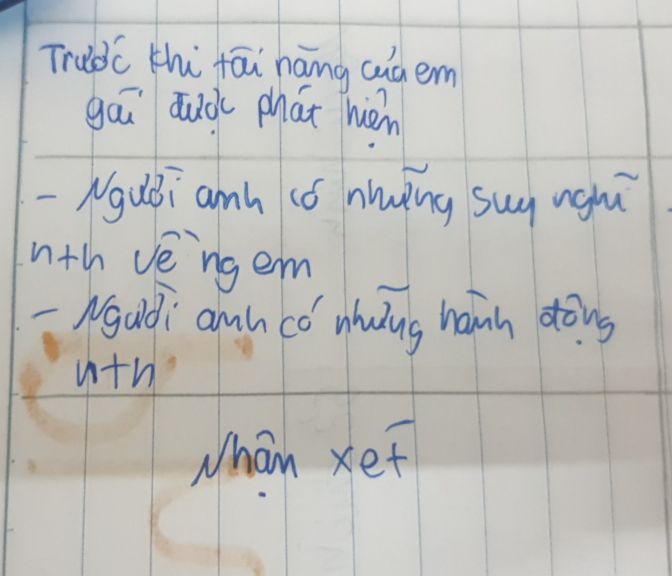 Trước khi tài năng của em
gái được phát hiện
- Người anh có những suy nghĩ
n+n về ng em
- Người anh có những hành động
n+n
Nhận xét